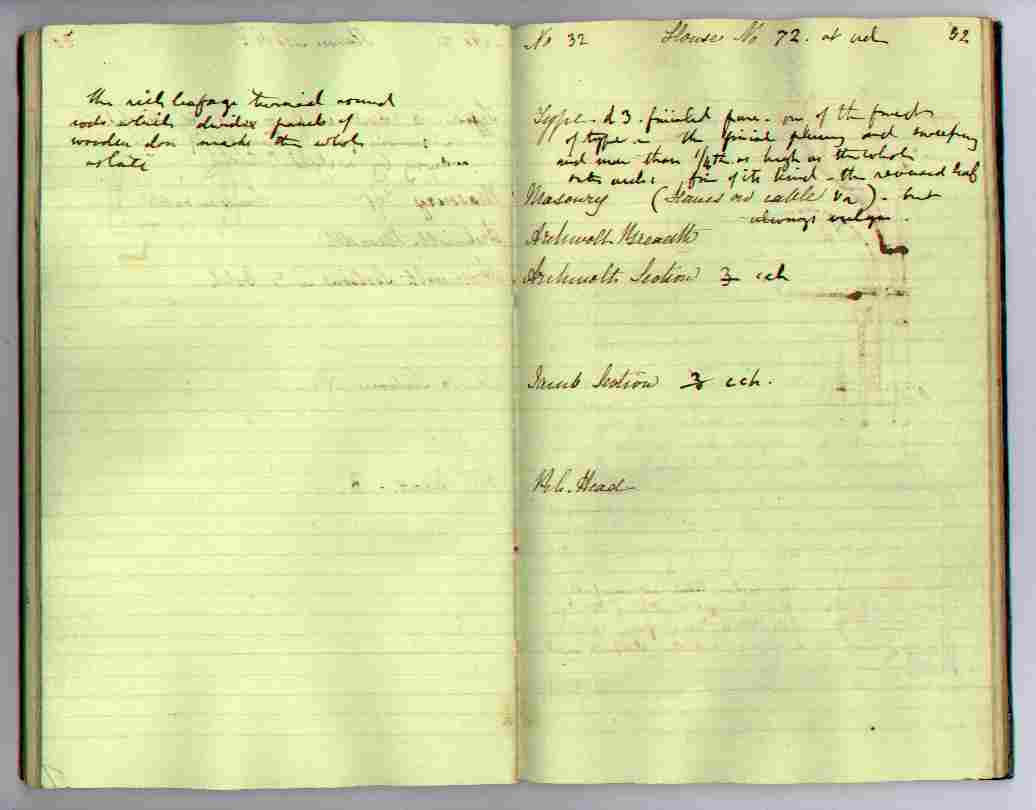 the rich leafage twined round
rods which divide panels of
wooden door makes the whole
No 32 House No 72. at
32
Type d 3. finished pure. one of the finest
of type in the finial plumy and sweeping
and more than 1/4th as high as the whole
outer arch: fine of its kind - the reversed leaf
Masonry (Stones as cable Va). but
always
Archivolt Breadth
Archivolt Section 3 cch
Jamb Section 3 cch.
Pl. Head